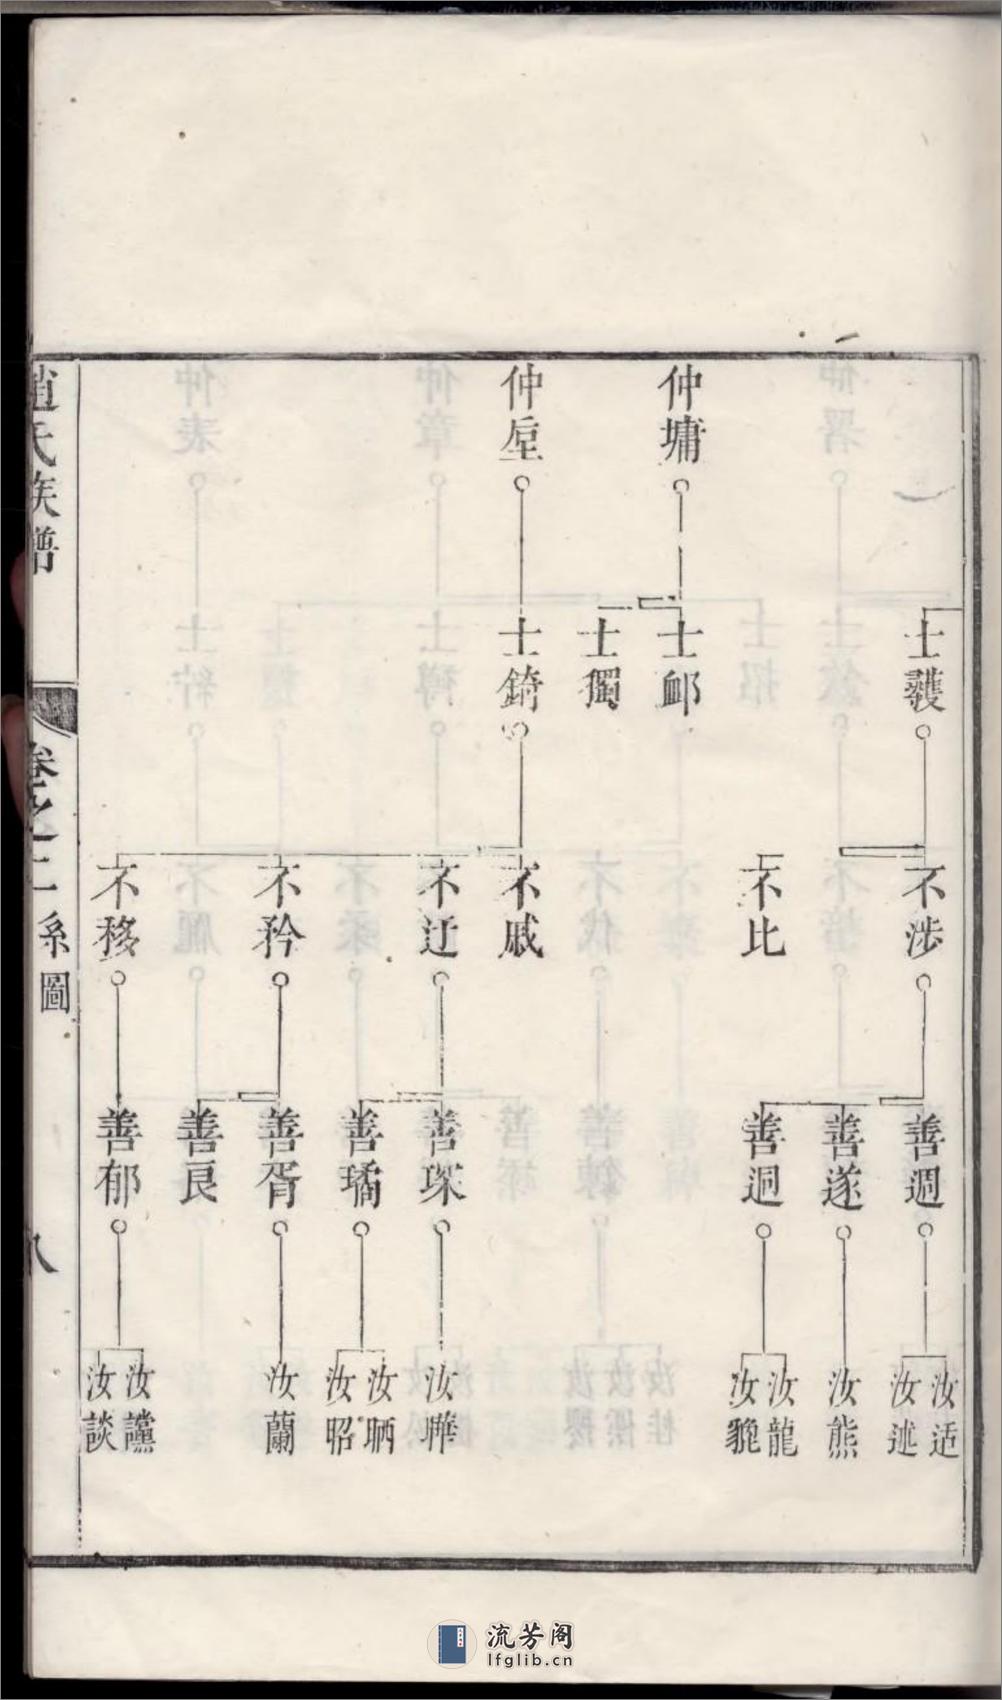 仲墉
仲垕
士護
士䘏
士獨
士錡
不涉
不比
不戚
不迂
不矜
不移
善週
善遂
善迴
善琛
善璚
善胥
善良
善郁
汝适
汝述
汝熊
汝龍
汝貔
汝曄
汝昞
汝昭
汝蘭
汝讜
汝談
趙氏族譜
卷之二
系圖
八
流芳阁
lfglib.cn